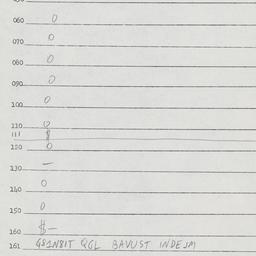 060 0
070 0
080 0
090 0
100 0
110 0
111 $
120 0
130 —
140 0
150 0
160 $ —
161